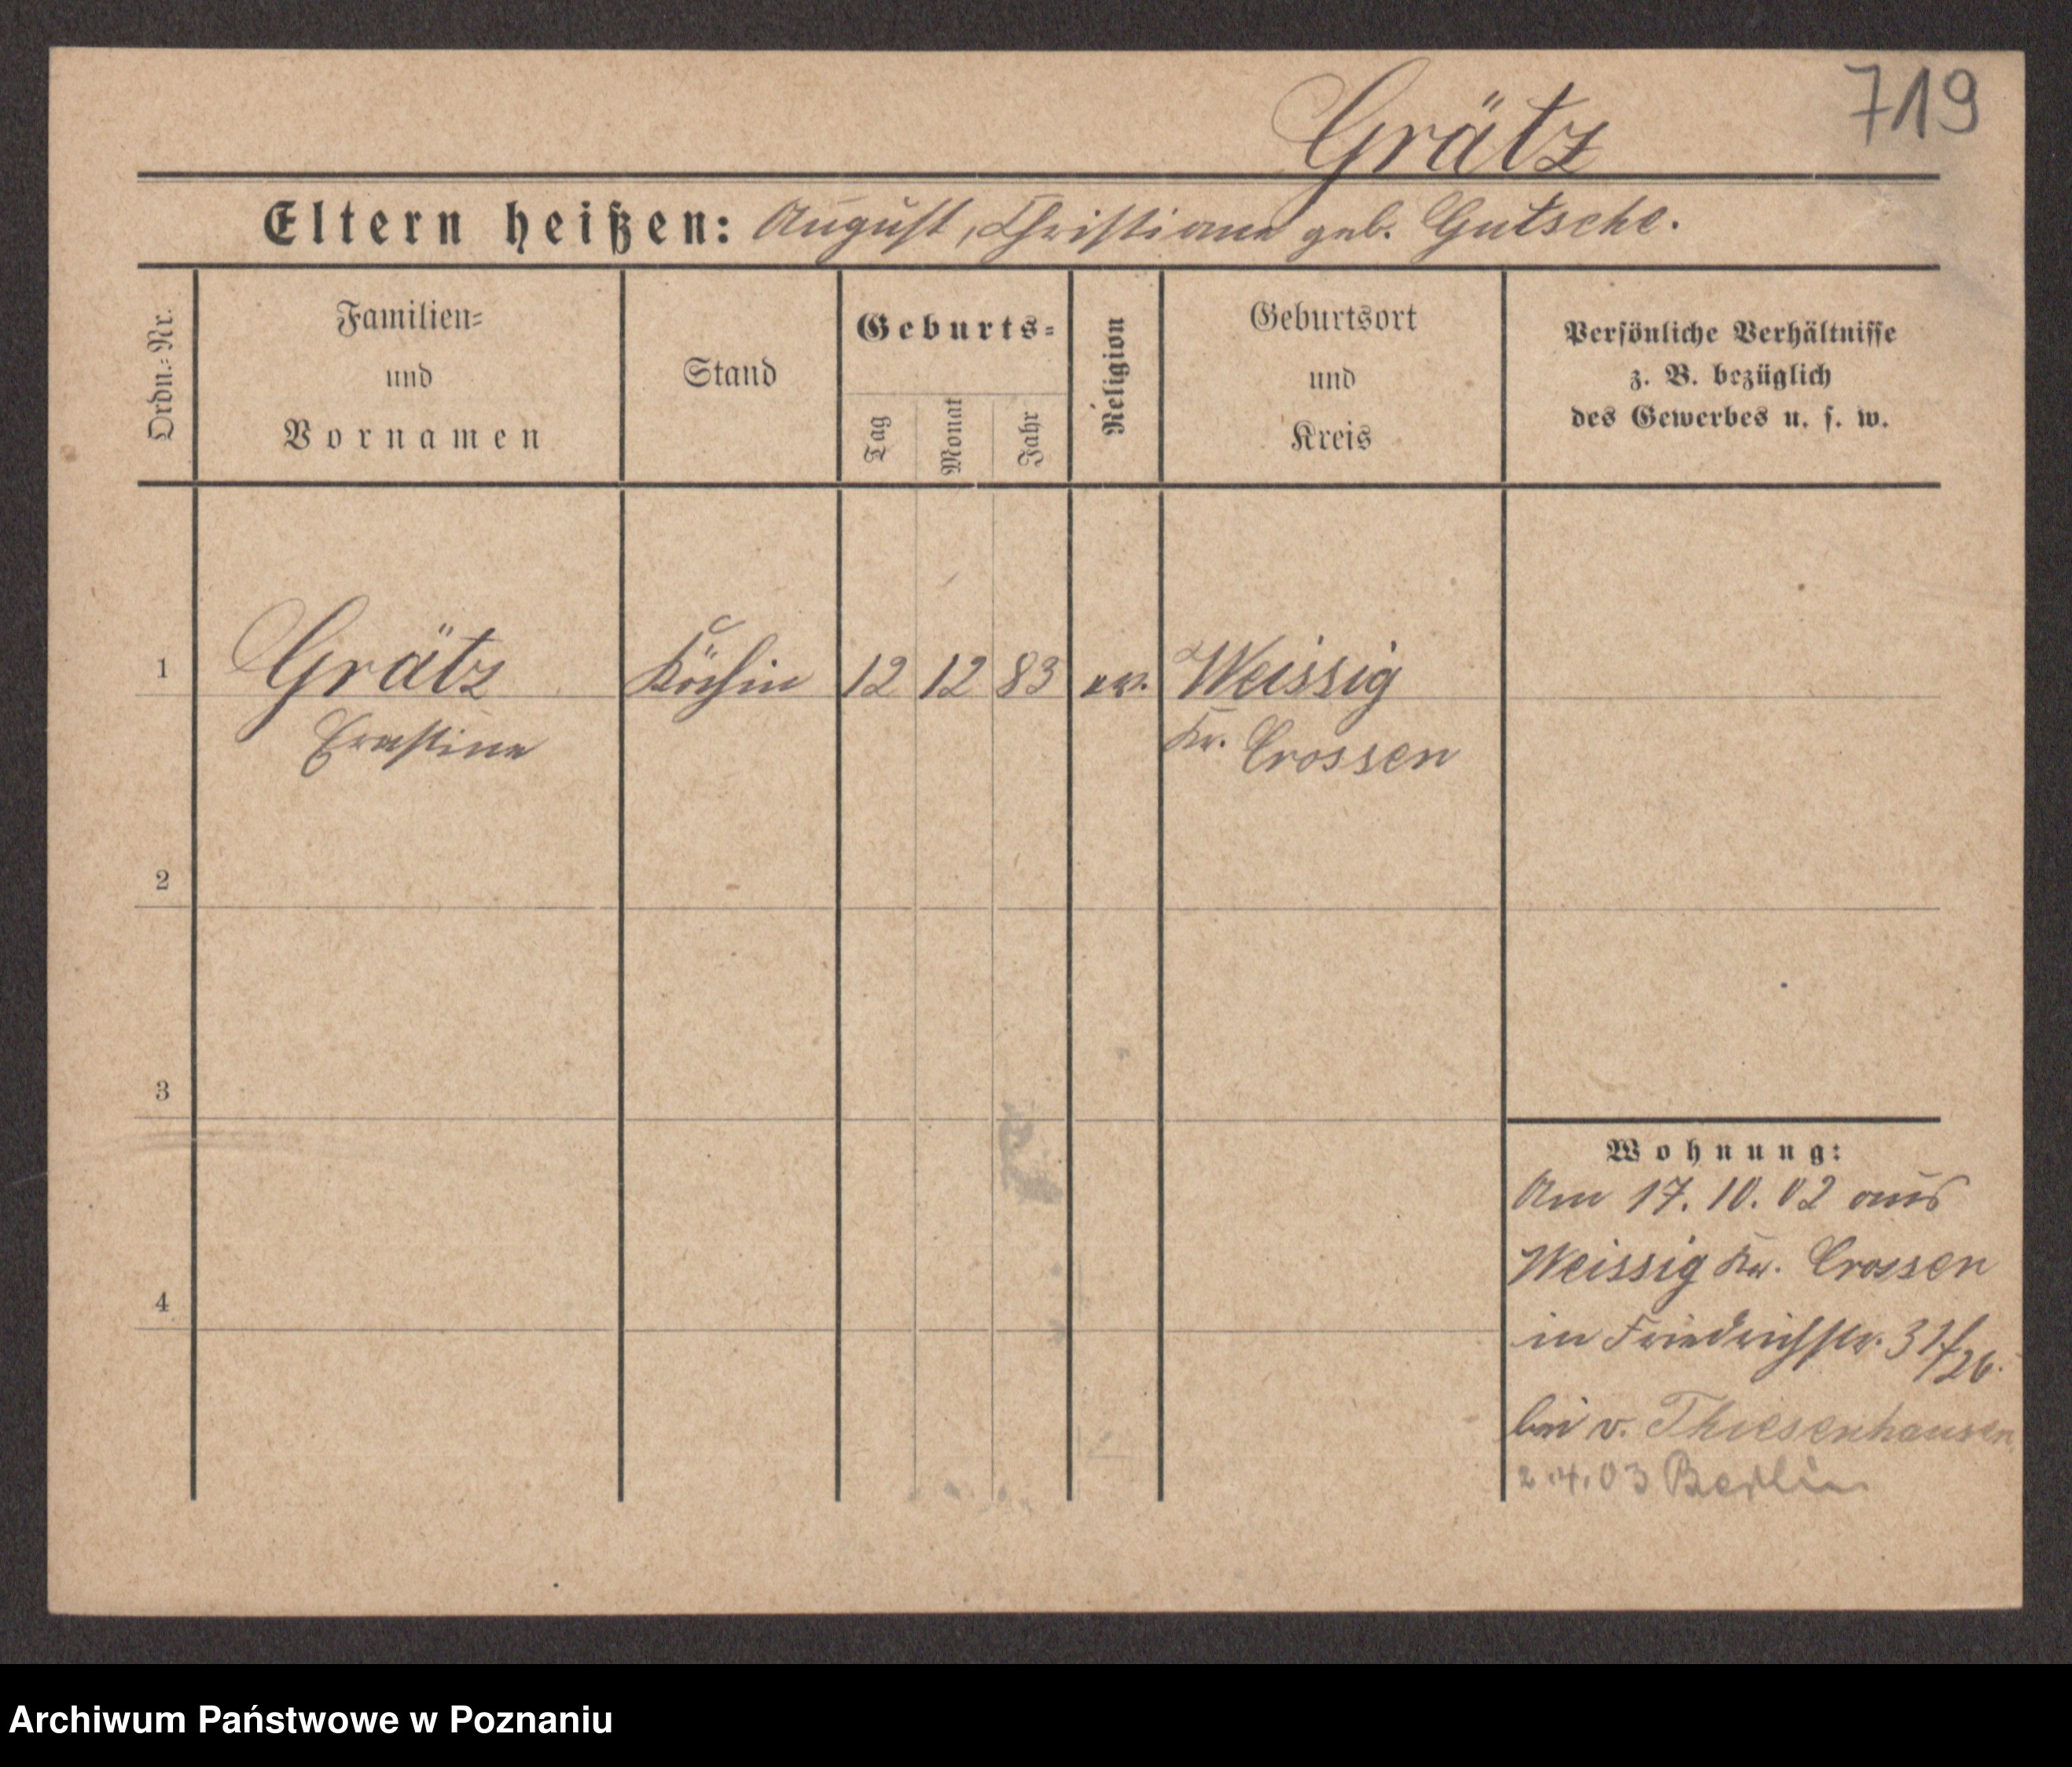 719
Grätz
Eltern heißen: August, Christiane geb. Gutsche.
Ordn.-Nr.
Familien-
und
Vornamen
Stand
Geburts-
Tag
Monat
Jahr
Religion
Geburtsort
und
Kreis
Persönliche Verhältnisse
z. B. bezüglich
des Gewerbes u. s. w.
1 Grätz Köchin 12 12 83 ev. Weissig
Ernestine Kr. Crossen
2
3
4
Wohnung:
Am 17. 10. 02 aus
Weissig Kr. Crossen
in Friedrichstr. 31/26.
bei v. Thiesenhausen
2.4.03 Berlin
Archiwum Państwowe w Poznaniu